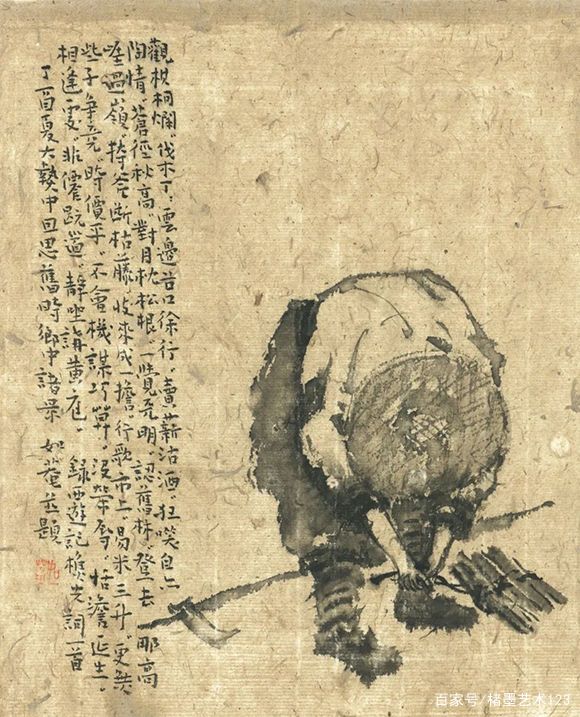 觀棋柯爛、伐木丁、雲邊谷口徐行、賣薪沽酒、狂笑自
陶情、蒼徑秋高、對月枕松根、一覺天明、認舊林、登去那高
崖過嶺、持斧斷枯藤、收來成一擔、行歌市上易米三升、更無
些子爭竞、時價平、不會機謀巧算、沒榮辱、恬澹延生、
相逢處、非僊即道、靜坐講黃庭。錄西遊記樵夫詞一首
丁酉夏大熱中回思舊時鄉中諸景 如菴並題
百家号/楮墨艺术123